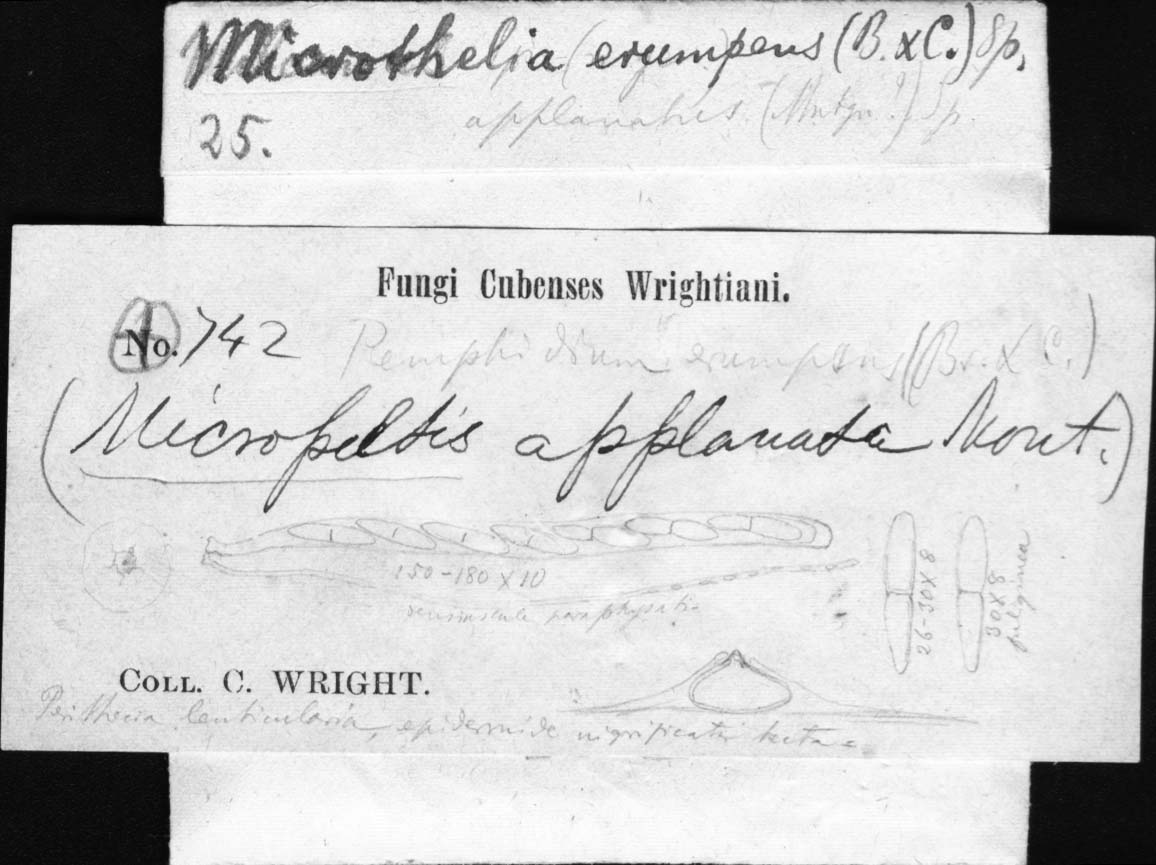 Microthelia (erumpens (B. & C.) Sp.
applanatus (Montgn.?) Sp.
25.
Fungi Cubenses Wrightiani.
No. 742 Remphidium erumpens (B. & C.)
(Micropeltis applanata Mont.)
150-180 X 10
paraphysati
26-30 X 8
30 X 8
fuliginea
Coll. C. WRIGHT.
Perithecia lenticularia, epidermide nigrificata tecta